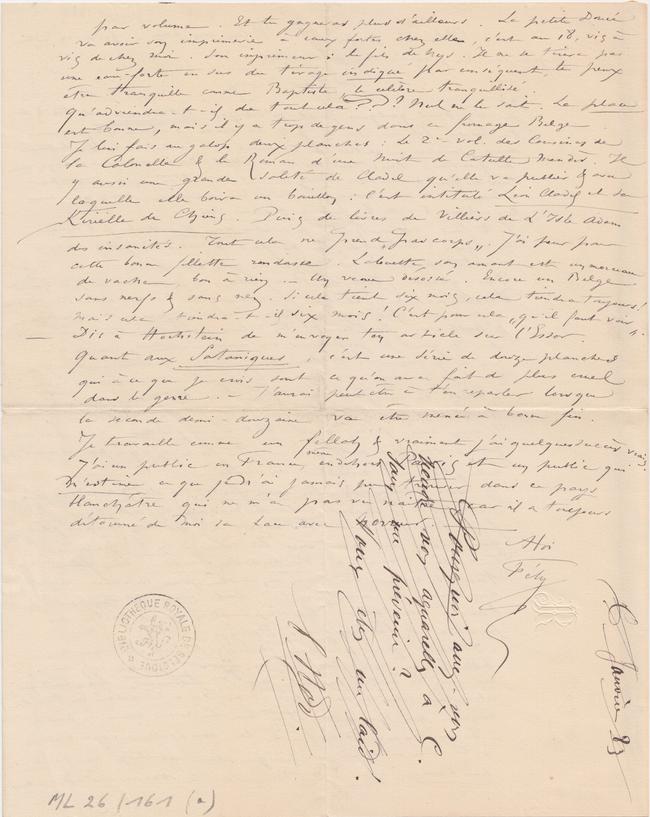 par volume. Et tu gagneras plus d'ailleurs. La petite Doucé
va avoir son imprimerie à eaux fortes chez elle, c'est au 18, vis à
vis de chez moi. Son imprimeur : le fils de Nys. Il ne se tirera pas
une eau-forte en sus du tirage indiqué par conséquent, tu peux
être tranquille comme Baptiste, le célèbre tranquillisé.
Qu'adviendra-t-il de tout cela ??? Nul ne le sait. La place
est bonne, mais il y a trop de gens dans ce fromage Belge.
Je lui fais au galop deux planches : Le 2e vol. des Cousines de
la Colonelle & le Roman d'une Nuit de Catulle Mendès. Il
y aussi une grande saleté de Cladel qu'elle va publier & avec
laquelle elle boira un bouillon : c'est intitulé Léon Cladel et sa
Kyrielle de Chiens. Puis de livres de Villiers de L'Isle Adam
des insanités. Tout cela ne prend „pas corps„. J'ai peur pour
cette bonne fillette rondasse. son amant est un morceau
de vache, bon à rien. – Un veau désossé. Encore un Belge
sans nerfs & sans nez. Si cela tient six mois, cela tiendra toujours !
mais cela tiendra-t-il six mois ! C'est pour cela „qu'il faut voir„
– Dis à Hochstein de m'envoyer ton article sur l'Essor.
Quant aux Sataniques, c'est une série de douze planches
qui à ce que je crois sont ce qu'on avait fait de plus cruel
dans le genre. – J'aurai peut être à t'en reparler lorsque
la seconde demi-douzaine va être menée à bonne fin.
Je travaille comme un fellah & vraiment j'ai quelques succès vrais.
J'ai un public en France, même en dehors Paris et un public qui
m'estime ce que je n'ai jamais pu dans ce pays
blanchâtre qui ne m'a pas vu naître car il a toujours
détourné de moi sa face avec
à toi
Fély
Pourquoi avez-vous
vos aquarelles à C.
sans me prévenir ?
Vous êtes un laid.
Janvier 83
BIBLIOTHÈQUE ROYALE DE BELGIQUE
ML 26/161 (a)